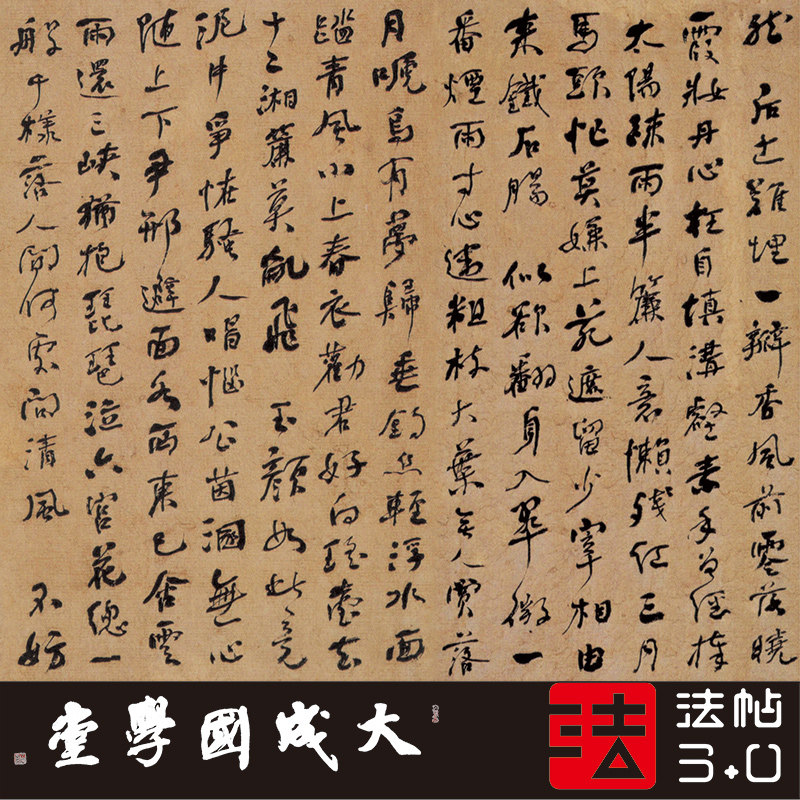 然 后土難埋一瓣香風前零落曉
霞妝丹心枉自填溝壑素手曾經捧
太陽疎雨半簾人意懶殘紅三月
馬頭忙莫嫌上苑遮留少宰相由
来鐵石腸 似欲翻身入翠微一
番煙雨寸心違粗枝大葉無人賞落
月啼烏有夢歸垂釣絲輕浮水面
踏青風小上春衣勸君好向瑤臺去
十二湘簾莫亂飛 玉顏如此竟
泥中爭怪騷人唱惱公茵溷無心
随上下尹邢避面各西東已含雲
雨還三峽猶抱琵琶泣六宮花總一
般千樣落人間何處問清風 不妨
大成國學堂
法
法帖
3+0